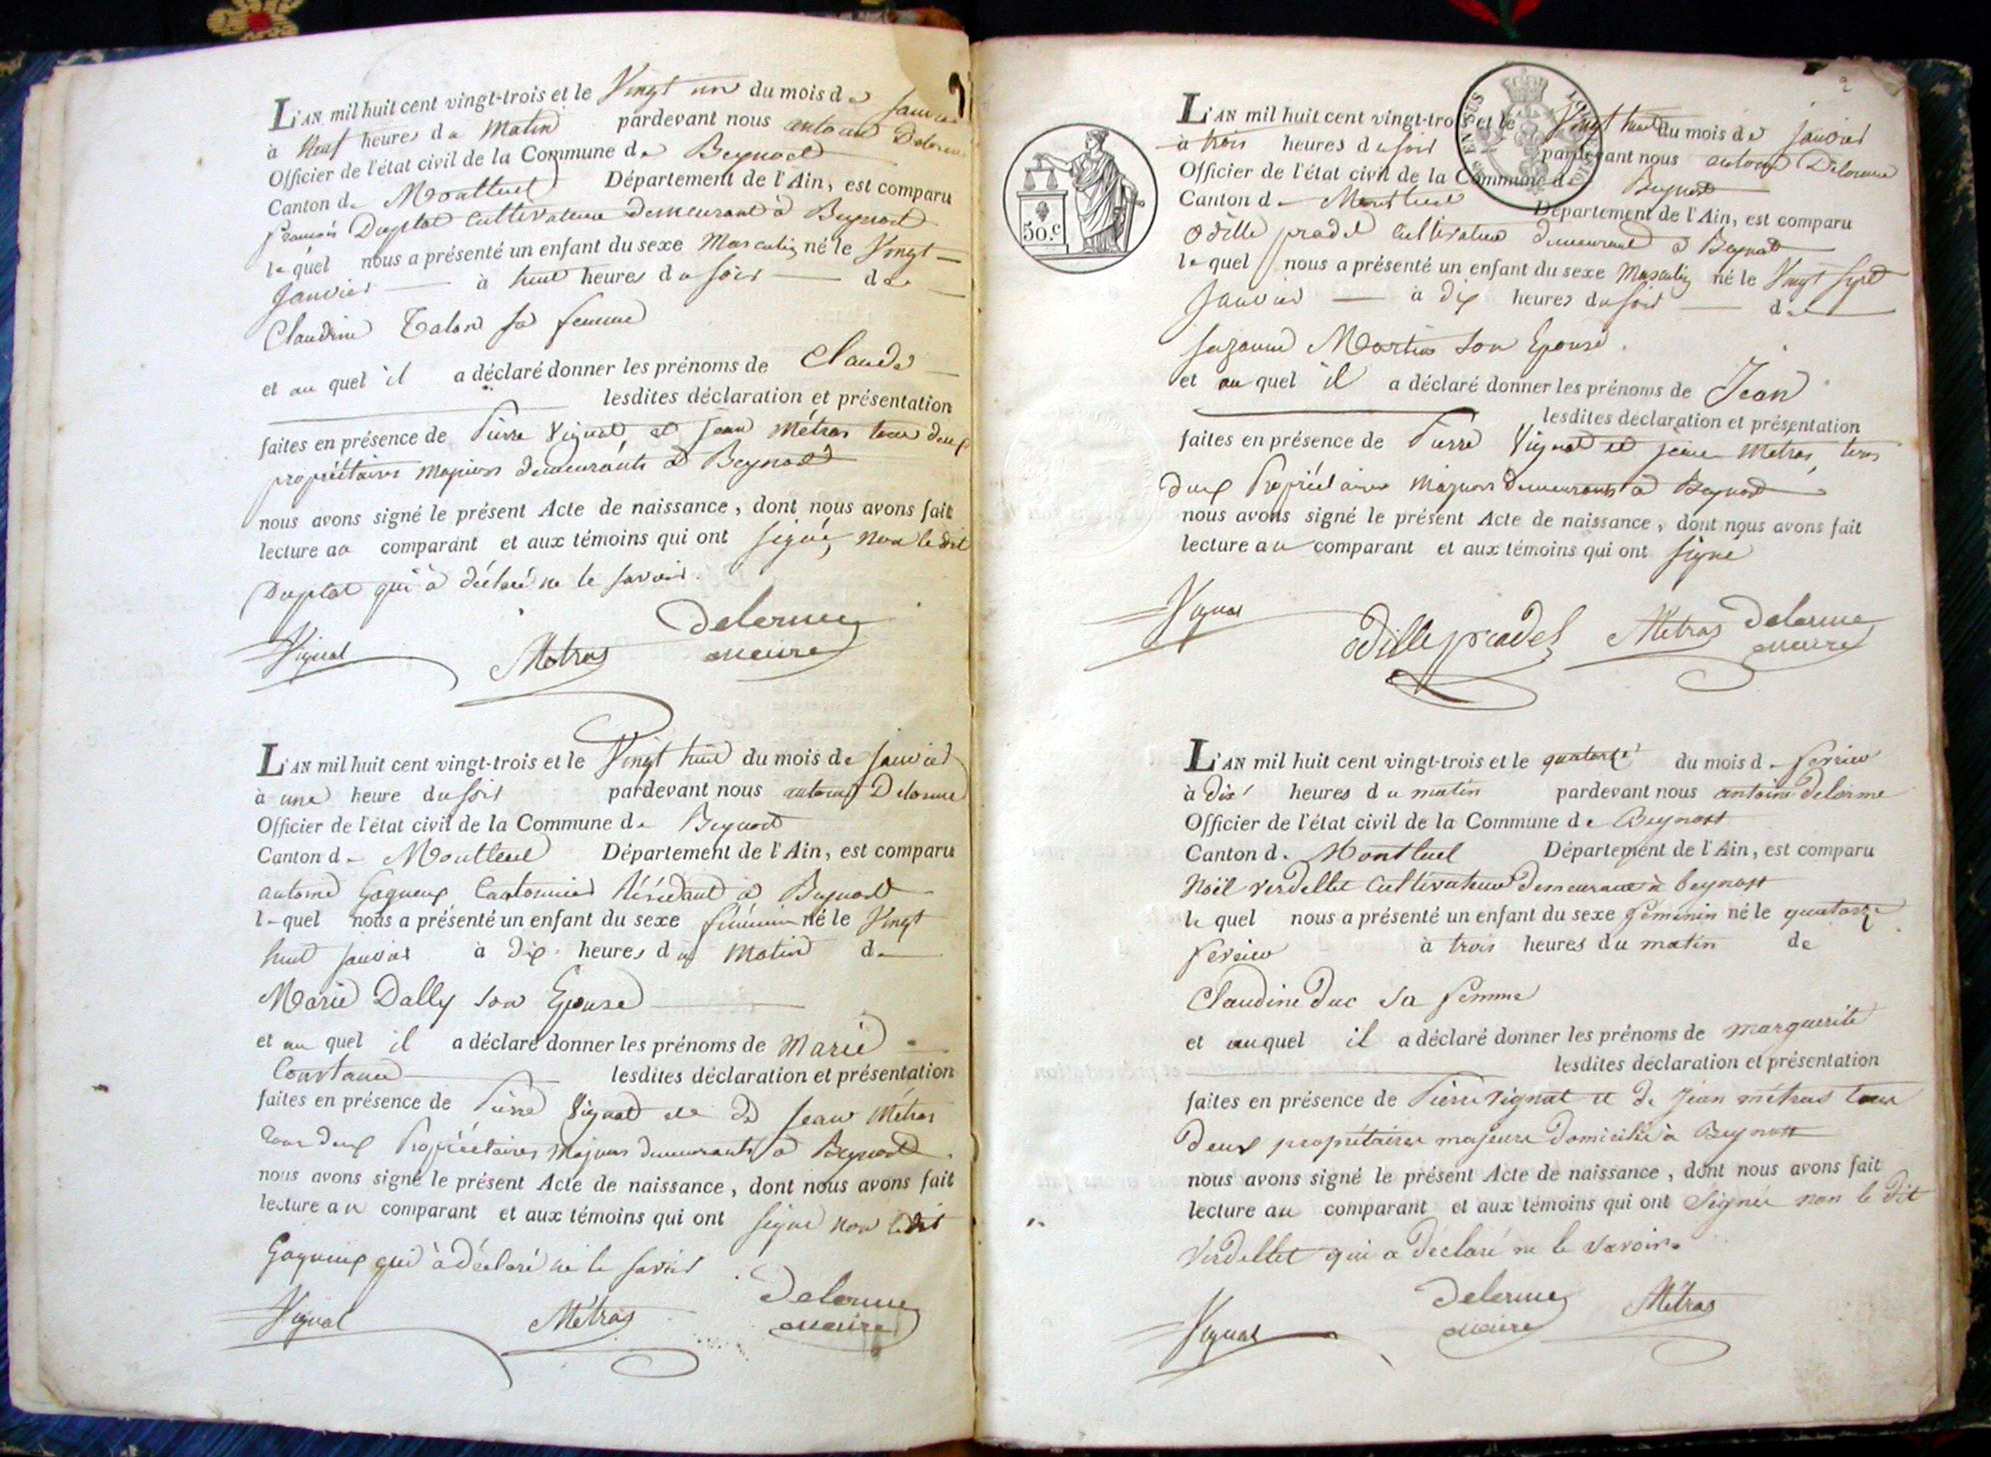 L'AN mil huit cent vingt-trois et le Vingt un du mois de Janvier
à Neuf heures du Matin pardevant nous antoine Delorme
Officier de l'état civil de la Commune de Beynost
Canton de Montluel Département de l'Ain, est comparu
francois Duplat cultivateur demeurant à Beynost
lequel nous a présenté un enfant du sexe Masculin né le Vingt
Janvier à huit heures du soir de
Claudine Talon sa femme
et auquel il a déclaré donner les prénoms de Claude
lesdites déclaration et présentation
faites en présence de Pierre Vignat et Jean Métras tous deux
propriétaires majeurs demeurants à Beynost
nous avons signé le présent Acte de naissance, dont nous avons fait
lecture au comparant et aux témoins qui ont signé, non le dit
Duplat qui à déclaré ne le savoir.
Delorme
Vignat Métras maire
L'AN mil huit cent vingt-trois et le Vingt huit du mois de Janvier
à une heure du soir pardevant nous antoine Delorme
Officier de l'état civil de la Commune de Beynost
Canton de Montluel Département de l'Ain, est comparu
antoine Gagneux Cantonnier Résidant à Beynost
lequel nous a présenté un enfant du sexe féminin né le Vingt
huit janvier à Dix heures du Matin de
Marie Dally son Epouse
et auquel il a déclaré donner les prénoms de Marie
Constance lesdites déclaration et présentation
faites en présence de Pierre Vignat et de Jean Métras
tous deux Propriétaires Majeurs demeurants à Beynost
nous avons signé le présent Acte de naissance, dont nous avons fait
lecture au comparant et aux témoins qui ont signé non ledit
Gagneux qui à déclaré ne le savoir
Delorme
Vignat Métras maire
2
50 c
L'AN mil huit cent vingt-trois et le Vingt huit du mois de Janvier
à trois heures du soir pardevant nous antoine Delorme
Officier de l'état civil de la Commune de Beynost
Canton de Montluel Département de l'Ain, est comparu
Odille pradel cultivateur demeurant à Beynost
lequel nous a présenté un enfant du sexe Masculin né le Vingt Sept
Janvier à dix heures du soir de
suzanne Martin son Epouse.
et auquel il a déclaré donner les prénoms de Jean
lesdites déclaration et présentation
faites en présence de Pierre Vignat et jean Métras, tous
deux Propriétaires Majeurs demeurants à Beynost
nous avons signé le présent Acte de naissance, dont nous avons fait
lecture au comparant et aux témoins qui ont signé
Vignat odille pradel Métras Delorme
maire
L'AN mil huit cent vingt-trois et le quatorze du mois de fevrier
à dix heures du matin pardevant nous antoine delorme
Officier de l'état civil de la Commune de Beynost
Canton de Montluel Département de l'Ain, est comparu
Noël verdellet cultivateur demeurant à beynost
lequel nous a présenté un enfant du sexe feminin né le quatorze
fevrier à trois heures du matin de
Claudine Duc sa femme
et auquel il a déclaré donner les prénoms de marguerite
lesdites déclaration et présentation
faites en présence de Pierre vignat et de Jean métras tous
deux propriétaires majeurs domiciliés à Beynost
nous avons signé le présent Acte de naissance, dont nous avons fait
lecture au comparant et aux témoins qui ont signés non le dit
Verdellet qui a déclaré ne le savoir.
Delorme Métras
Vignat maire